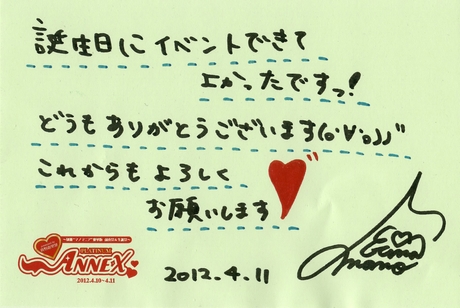 誕生日にイベントできて
よかったですっ!
どうもありがとうございます(o・∀・o)ﾉﾞ
これからもよろしく
お願いします
ANNEX
2012.4.10~4.11
2012.4.11